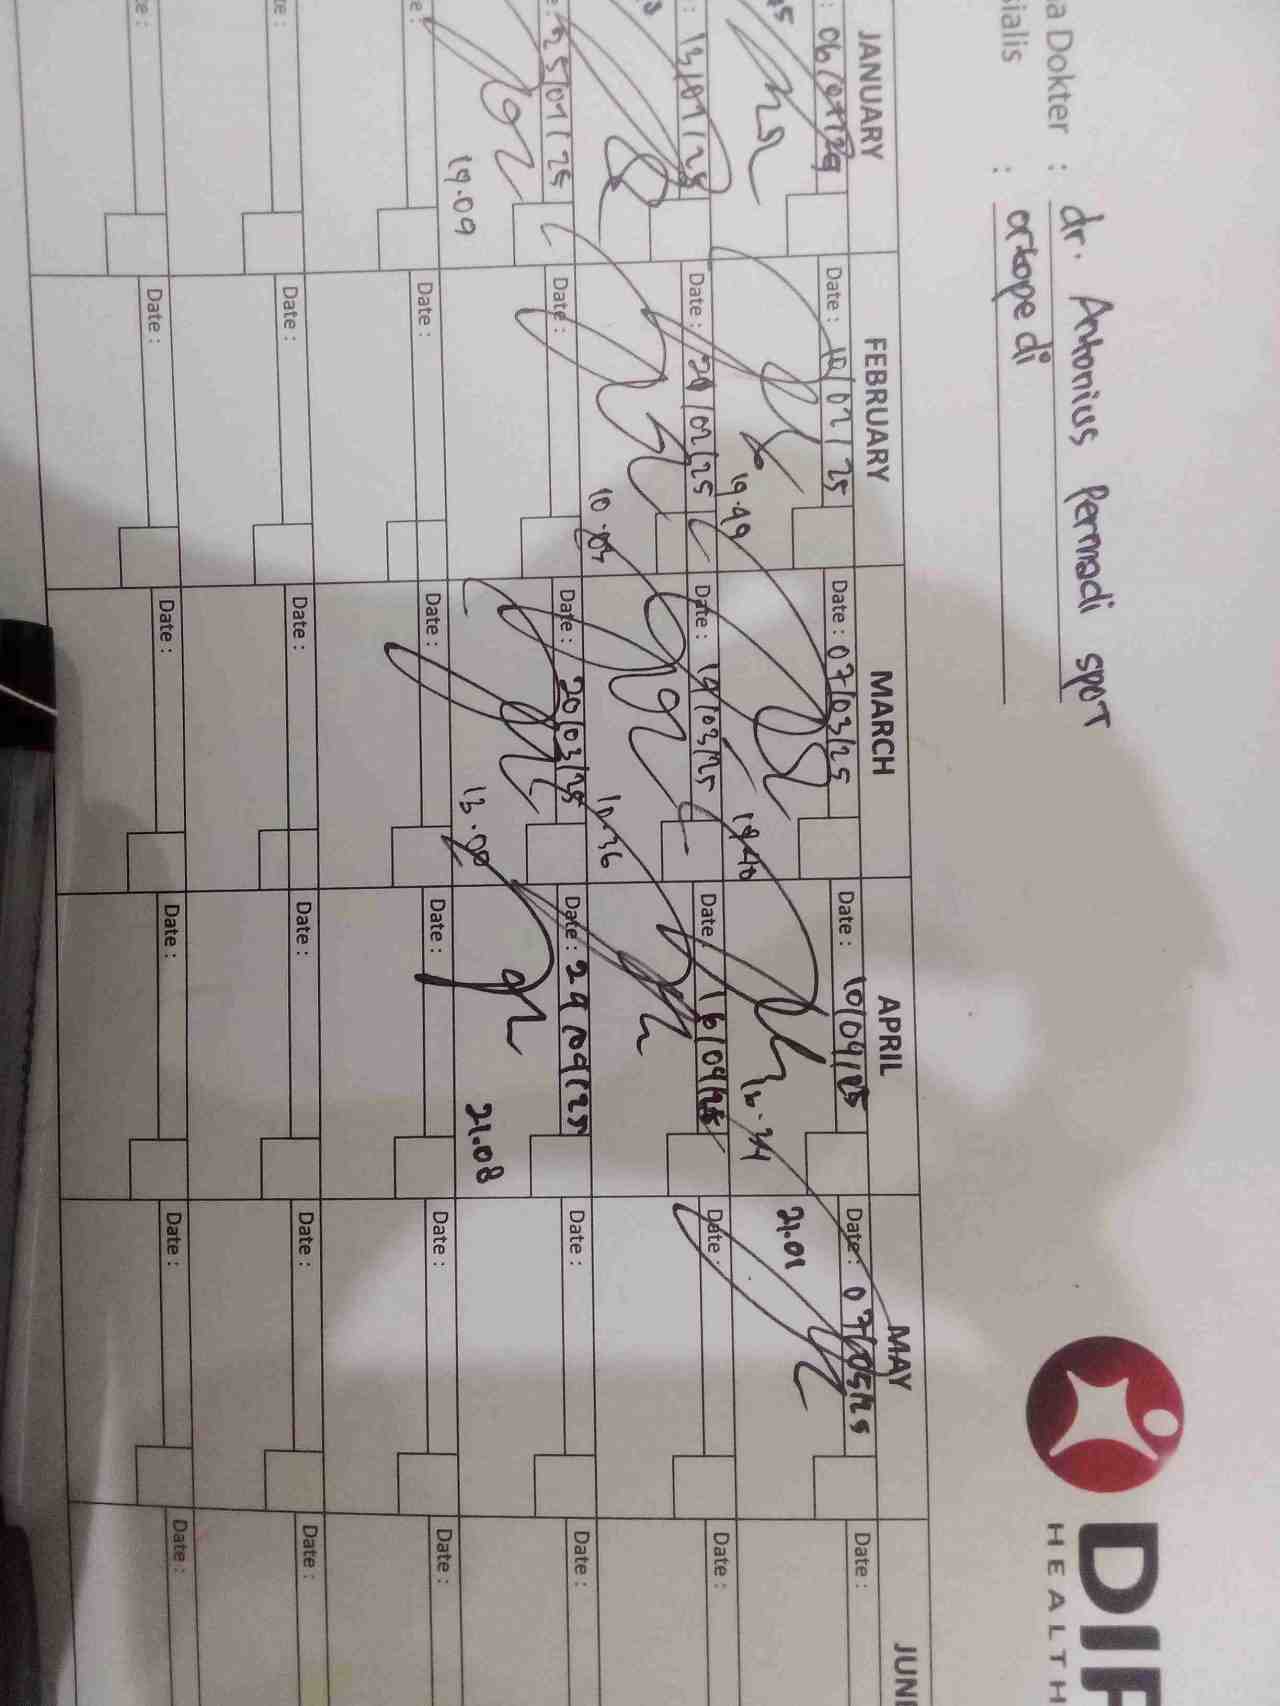 DIF
HEALTH
a Dokter : dr. Antonius Permadi SPOT
ialis : ortopedi
JANUARY FEBRUARY MARCH APRIL MAY JUN
Date : 10/02/25 Date : 07/03/25 Date : 10/04/25 Date : 07/05/25 Date :
19.49 21.01
: 13/01/25 Date : 20/02/25 Date : 19/03/25 Date : 16/04/25 Date : Date :
10.03 10.36
: 25/01/25 Date : Date : 20/03/25 Date : 29/04/25 Date : Date :
19.09 13.00 21.08
e : Date : Date : Date : Date : Date :
te : Date : Date : Date : Date : Date :
te : Date : Date : Date : Date : Date :